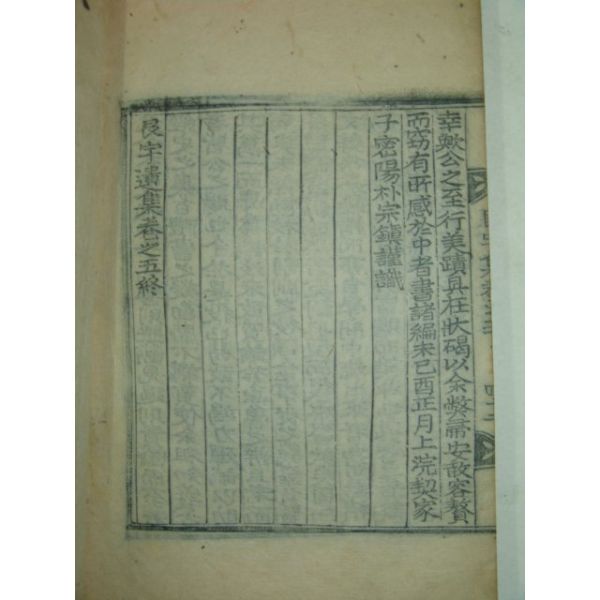 幸歟公之至行美蹟具在狀碣以余弊帚安敢容贅
而竊有所感於中者書諸編末己酉正月上浣契家
子密陽朴宗鎭謹識
艮宇遺集卷之五終